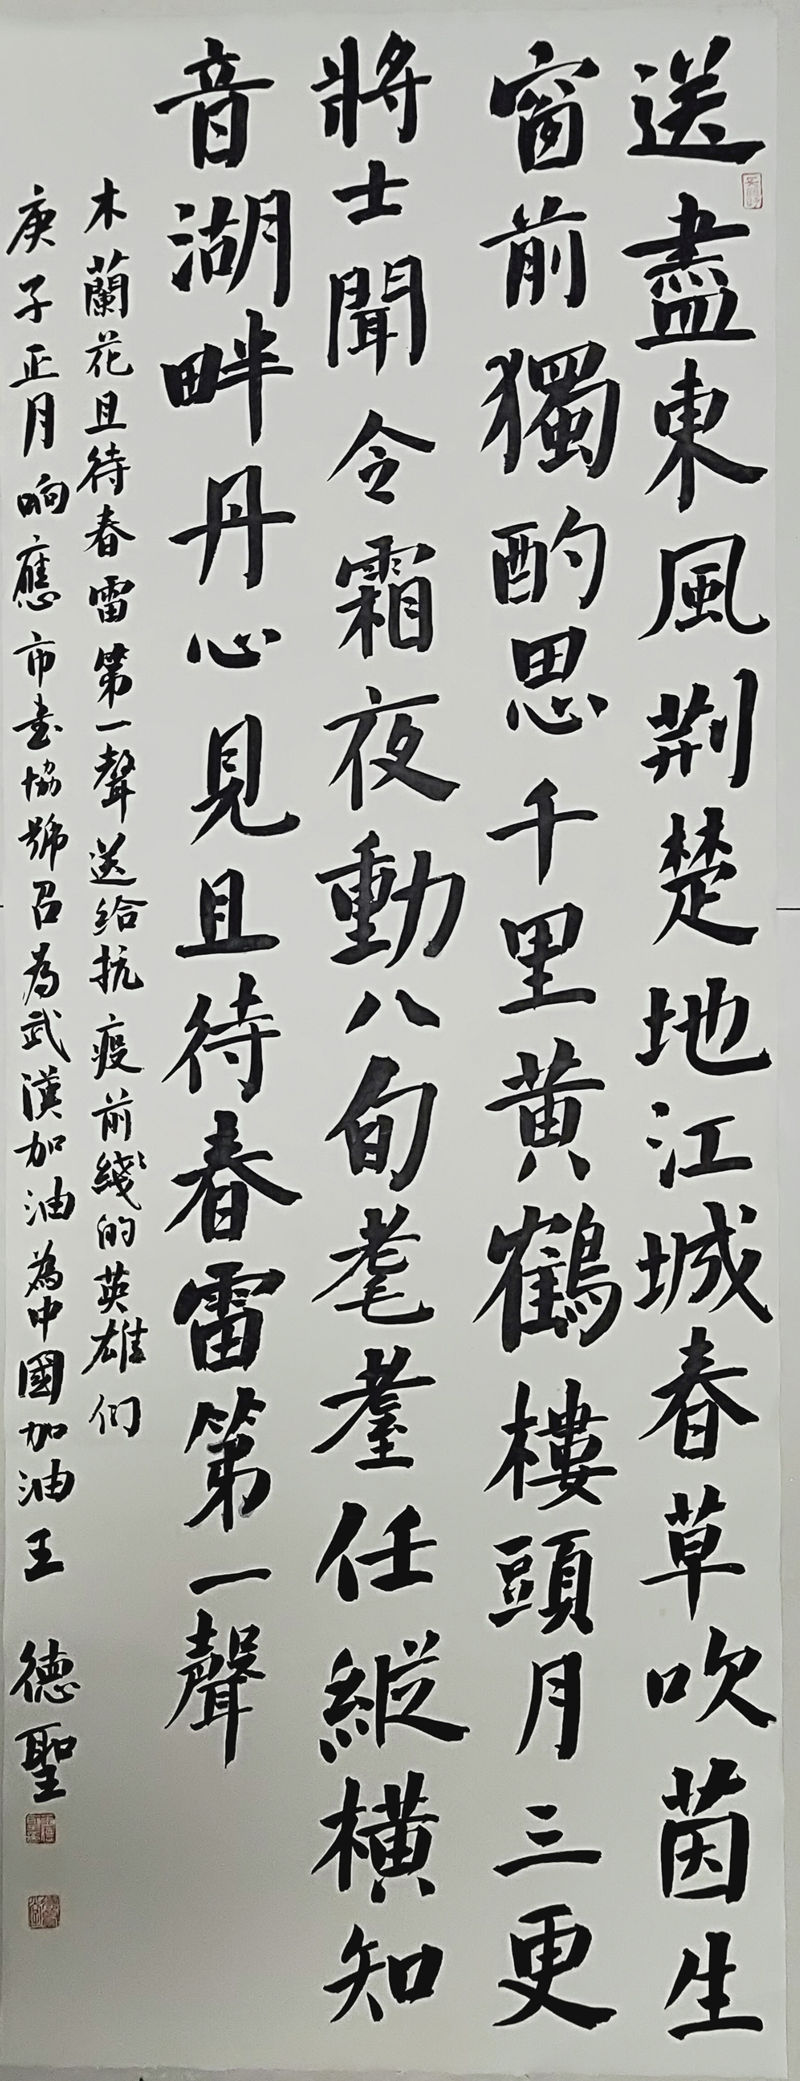 送盡東風荆楚地江城春草吹茵生
窗前獨酌思千里黄鶴樓頭月三更
將士聞令霜夜動八旬耄耋任縱横知
音湖畔丹心見且待春雷第一聲
木蘭花且待春雷第一聲送給抗疫前綫的英雄们
庚子正月响應市书協號召为武漢加油為中國加油王德聖